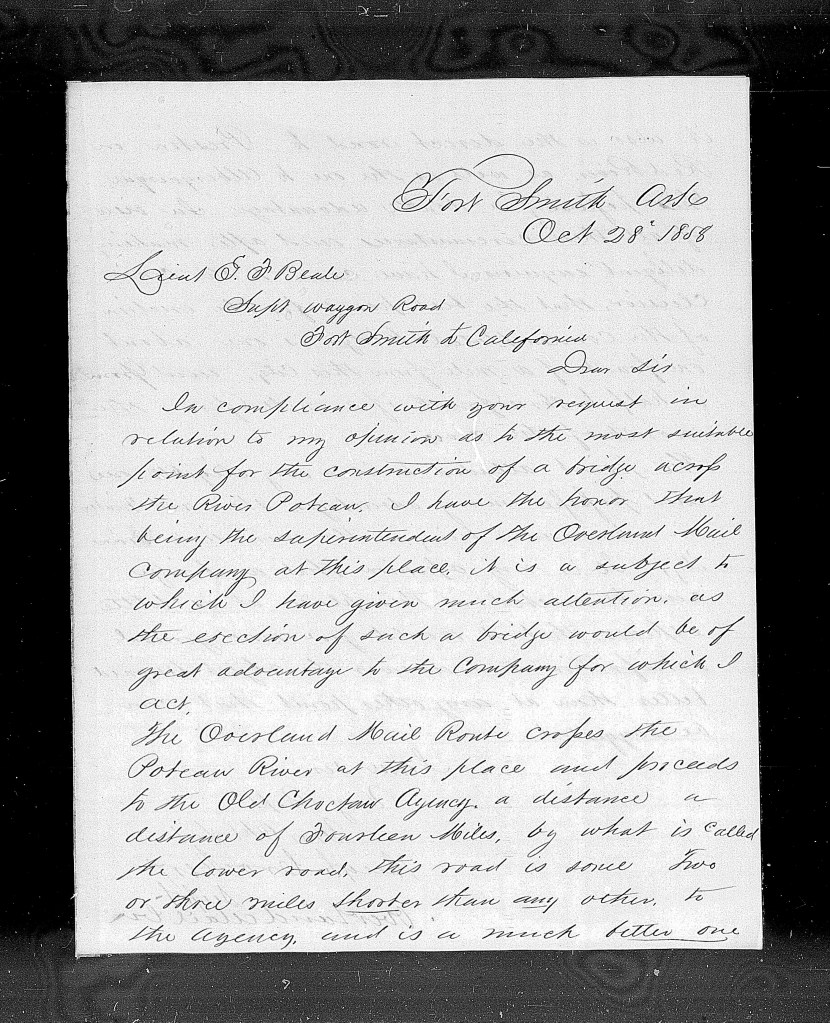 Fort Smith Arks
Oct 28 1858
Lieut E. F Beale
Supt waggon Road
Fort Smith to California
Dear Sir
In compliance with your request in
relation to my opinion as to the most suitable
point for the construction of a bridge across
the River Poteau. I have the honor that
being the superintendent of the Overland Mail
Company at this place, it is a subject to
which I have given much attention. as
the erection of such a bridge would be of
great advantage to the Company for which I
act
The Overland Mail Route crosses the
Poteau River at this place and proceeds
to the Old Choctaw Agency. a distance a
distance of Fourteen Miles, by what is called
the lower road, this road is some Two
or three miles shorter than any other, to
the agency, and is a much better one